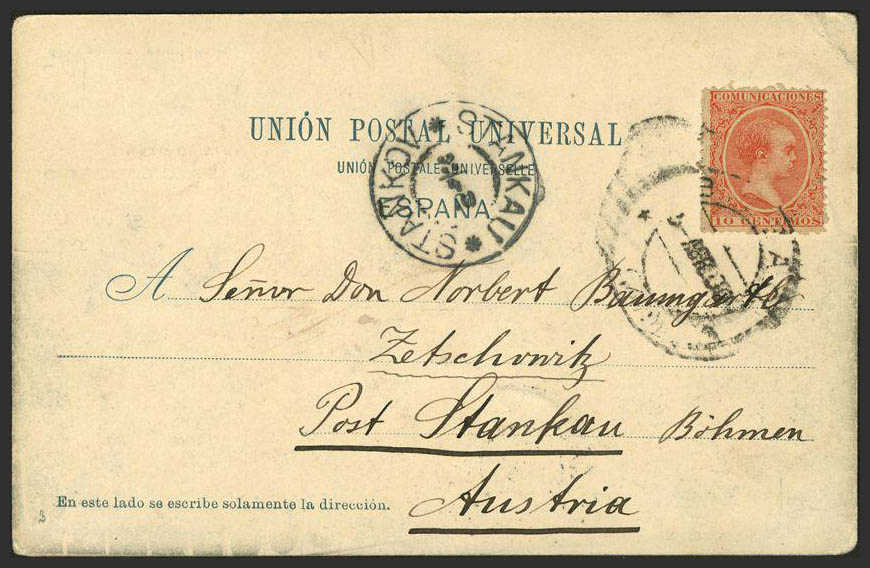 COMUNICACIONES
10 CENTIMOS
UNIÓN POSTAL UNIVERSAL
UNION POSTALE UNIVERSELLE
ESPAÑA
STAŇKOV * STANKAU *
A Señor Don Norbert Baumgartl
Zetschowitz
Post Stankau Böhmen
Austria
En este lado se escribe solamente la dirección.